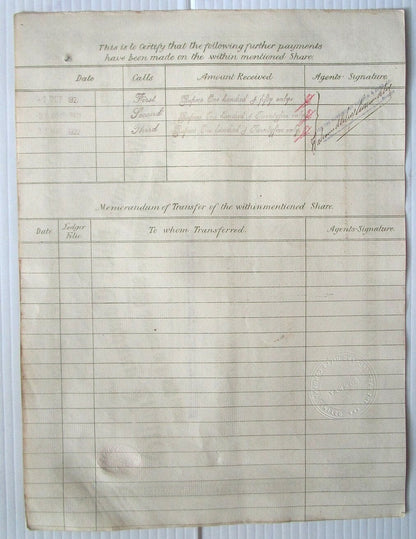 This is to Certify that the following further payments
have been made on the within mentioned Share.
Date Calls Amount Received Agents-Signature
192 First Rupees One hundred & fifty only
Second Rupees One hundred & Twentyfive only
1922 Third Rupees One hundred & Twentyfive only
Memorandum of Transfer of the within mentioned Share.
Date Ledger Folio To whom Transferred. Agents-Signature.